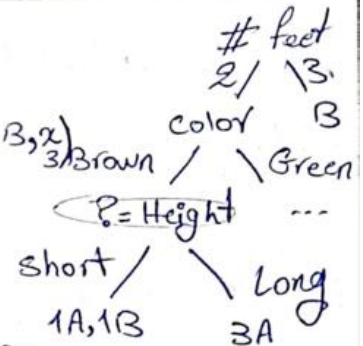 # feet
2 3.
color B
B,x)
3) Brown Green
? = Height ...
short Long
1A,1B 3A